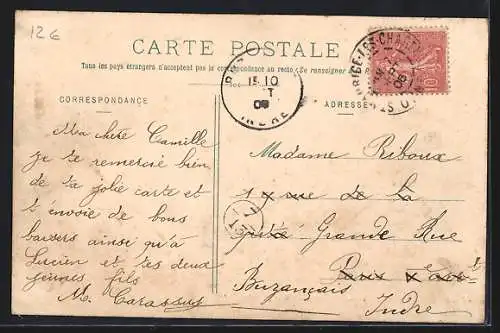 12 €
CARTE POSTALE
Tous les pays étrangers n'acceptent pas la correspondance au recto (Se renseigner
CORRESPONDANCE
ADRESSE
15 10
08
INDRE
10
Ma chère Camille
je te remercie bien
de ta jolie carte et
t'envoie de bons
baisers ainsi qu'à
Lucien et tes deux
jeunes fils
M. Carassus
Madame Riboux
1 rue de La
Grande Rue
Paris
Buzançais
Indre